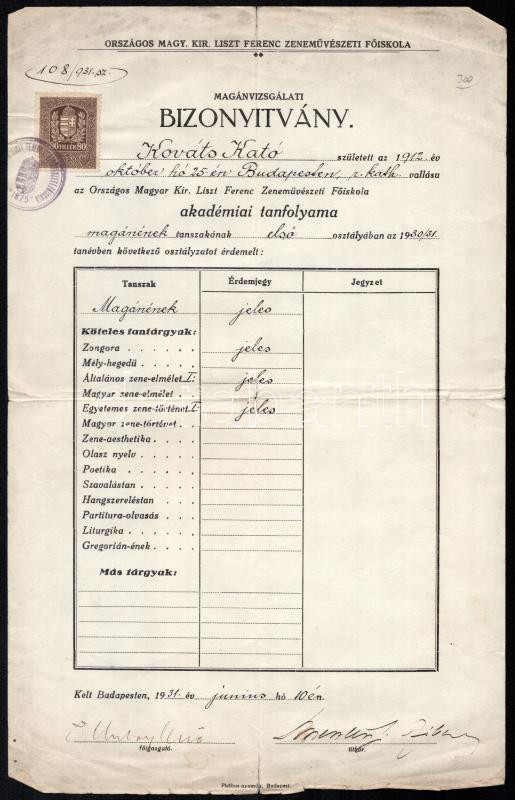 ORSZÁGOS MAGY. KIR. LISZT FERENC ZENEMŰVÉSZETI FŐISKOLA
108/931. sz.
300
80 FILLÉR 80
1875
MAGÁNVIZSGÁLATI
BIZONYITVÁNY.
Kováts Kató született az 1912. év
október hó 25-én Budapesten, r. kath. vallásu
az Országos Magyar Kir. Liszt Ferenc Zeneművészeti Főiskola
akadémiai tanfolyama
magánének tanszakának első osztályában az 1930/31.
tanévben következő osztályzatot érdemelt:
Tanszak Érdemjegy Jegyzet
Magánének jeles
Köteles tantárgyak:
Zongora . . . . . . jeles
Mély-hegedü . . . .
Általános zene-elmélet I. jeles
Magyar zene-elmélet .
Egyetemes zene-történet I. jeles
Magyar zene-történet .
Zene-aesthetika . . . .
Olasz nyelv . . . . .
Poetika . . . . . .
Szavalástan . . . . .
Hangszereléstan . . .
Partitura-olvasás . . .
Liturgika . . . . .
Gregorián-ének . . . .
Más tárgyak:
Kelt Budapesten, 1931. év junius hó 10-én.
Hubay Jenő
főigazgató. titkár.
Budapest.